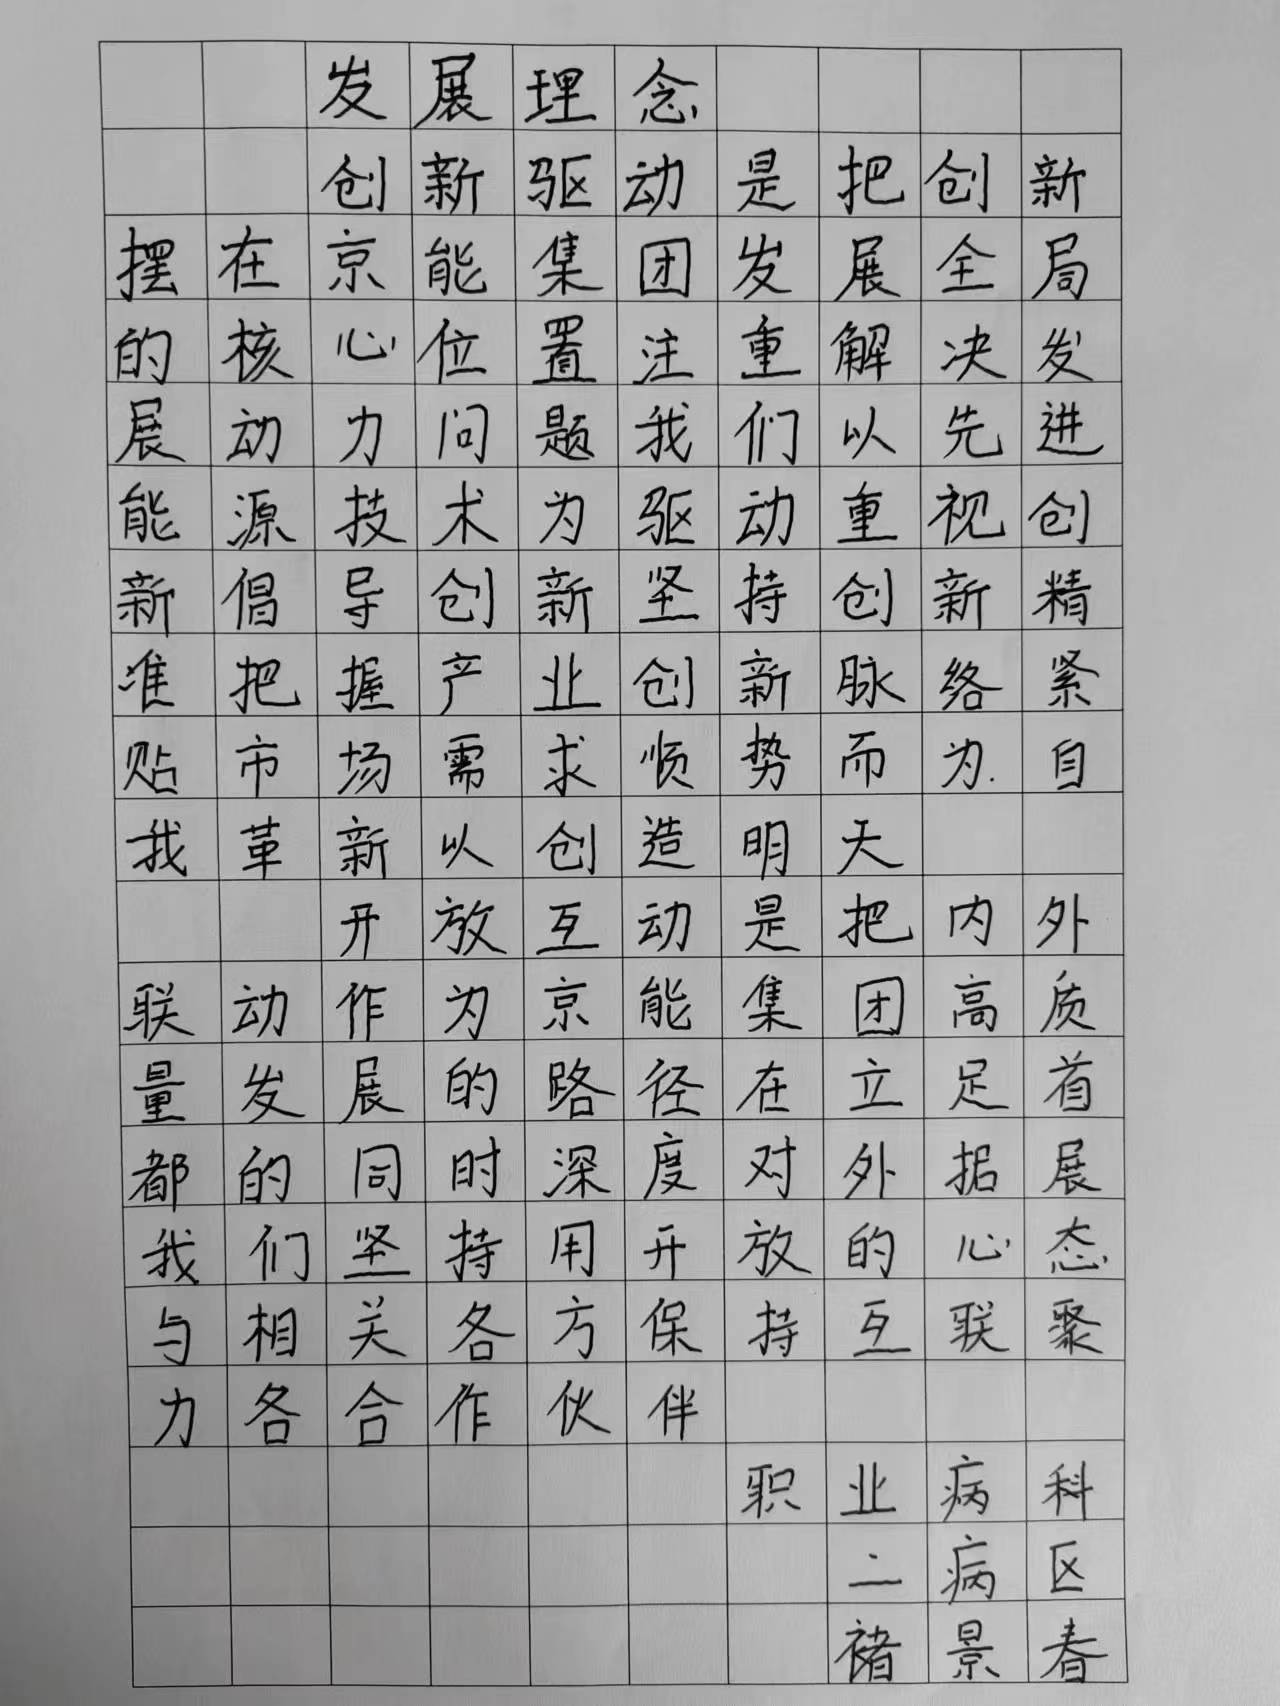 发展理念
创新驱动是把创新
摆在京能集团发展全局
的核心位置注重解决发
展动力问题我们以先进
能源技术为驱动重视创
新倡导创新坚持创新精
准把握产业创新脉络紧
贴市场需求顺势而为.自
我革新以创造明天
开放互动是把内外
联动作为京能集团高质
量发展的路径在立足首
都的同时深度对外拓展
我们坚持用开放的心态
与相关各方保持互联聚
力各合作伙伴
职业病科
二病区
褚景春